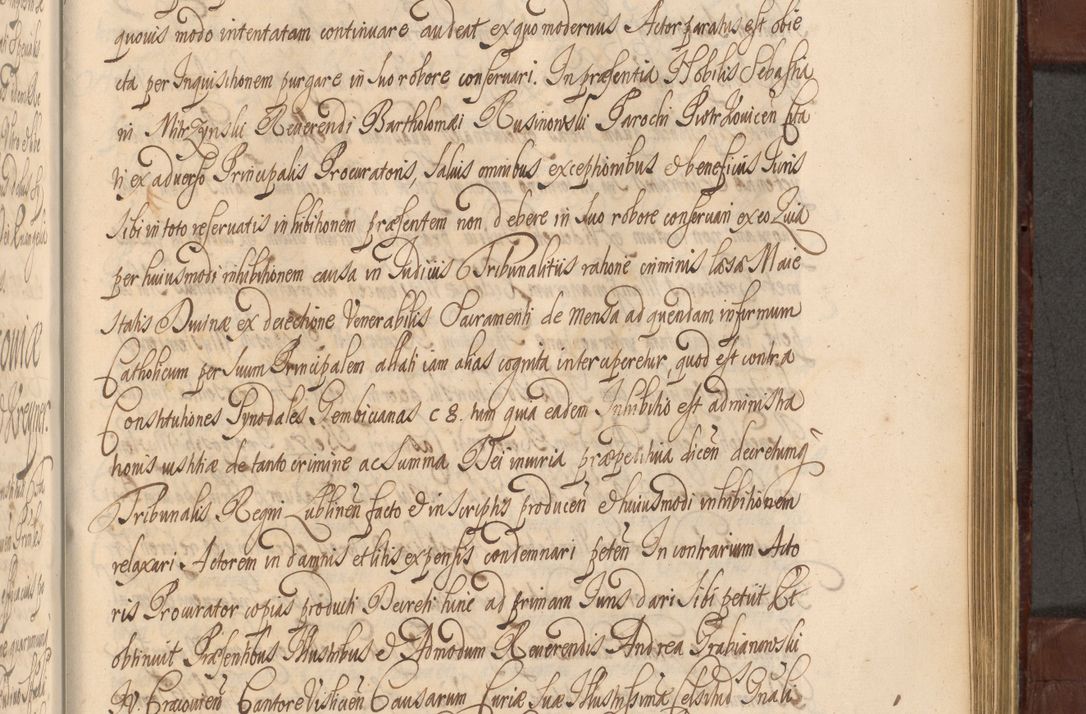 quouis modo intentatam continuare audeat ex quo modernus Actor paratus est obie
cta per Inquisitionem purgare in suo robore conseruari. In præsentia Nobilis Sebastia
ni Mstrzynski Reuerendi Bartholomæi Rusinowski Parochi Piotrkouicen Cita
ti ex aduerso Principalis Procuratoris, saluis omnibus exceptionibus et beneficiis Iuris
sibi in toto reseruatis inhibitionem præsentem non debere in suo robore conseruari ex eo Quia
per huiusmodi inhibitionem causa in Iudiciis Tribunalitiis ratione criminis læsæ Maie
statis Diuinæ ex deiectione Venerabilis Sacramenti de mensa ad quendam infirmum
Catholicum per suum Principalem allati iam alias cognita interciperetur, quod est contra
Constitutiones Synodales Gembicianas c 8. tum quia eadem Inhibitio est administra
tionis iustitiæ de tanto crimine ac summa Dei iniuria præpeditiua dicen̄ decretumq̄
Tribunalis Regni Lublinen̄ facto et in scriptis producen̄ et huiusmodi inhibitionem
relaxari Actorem in damnis et litis expensis condemnari peten̄ In contrarium Acto
ris Procurator copias producti Decreti hinc ad primam Iuris dari sibi petiit Et
obtinuit Præsentibus Illustribus et Admodum Reuerendis Andrea Grabianowski
Cracouien̄ Cantore Vislicien̄ Causarum Curiæ suæ Illustrissimæ Celsitud